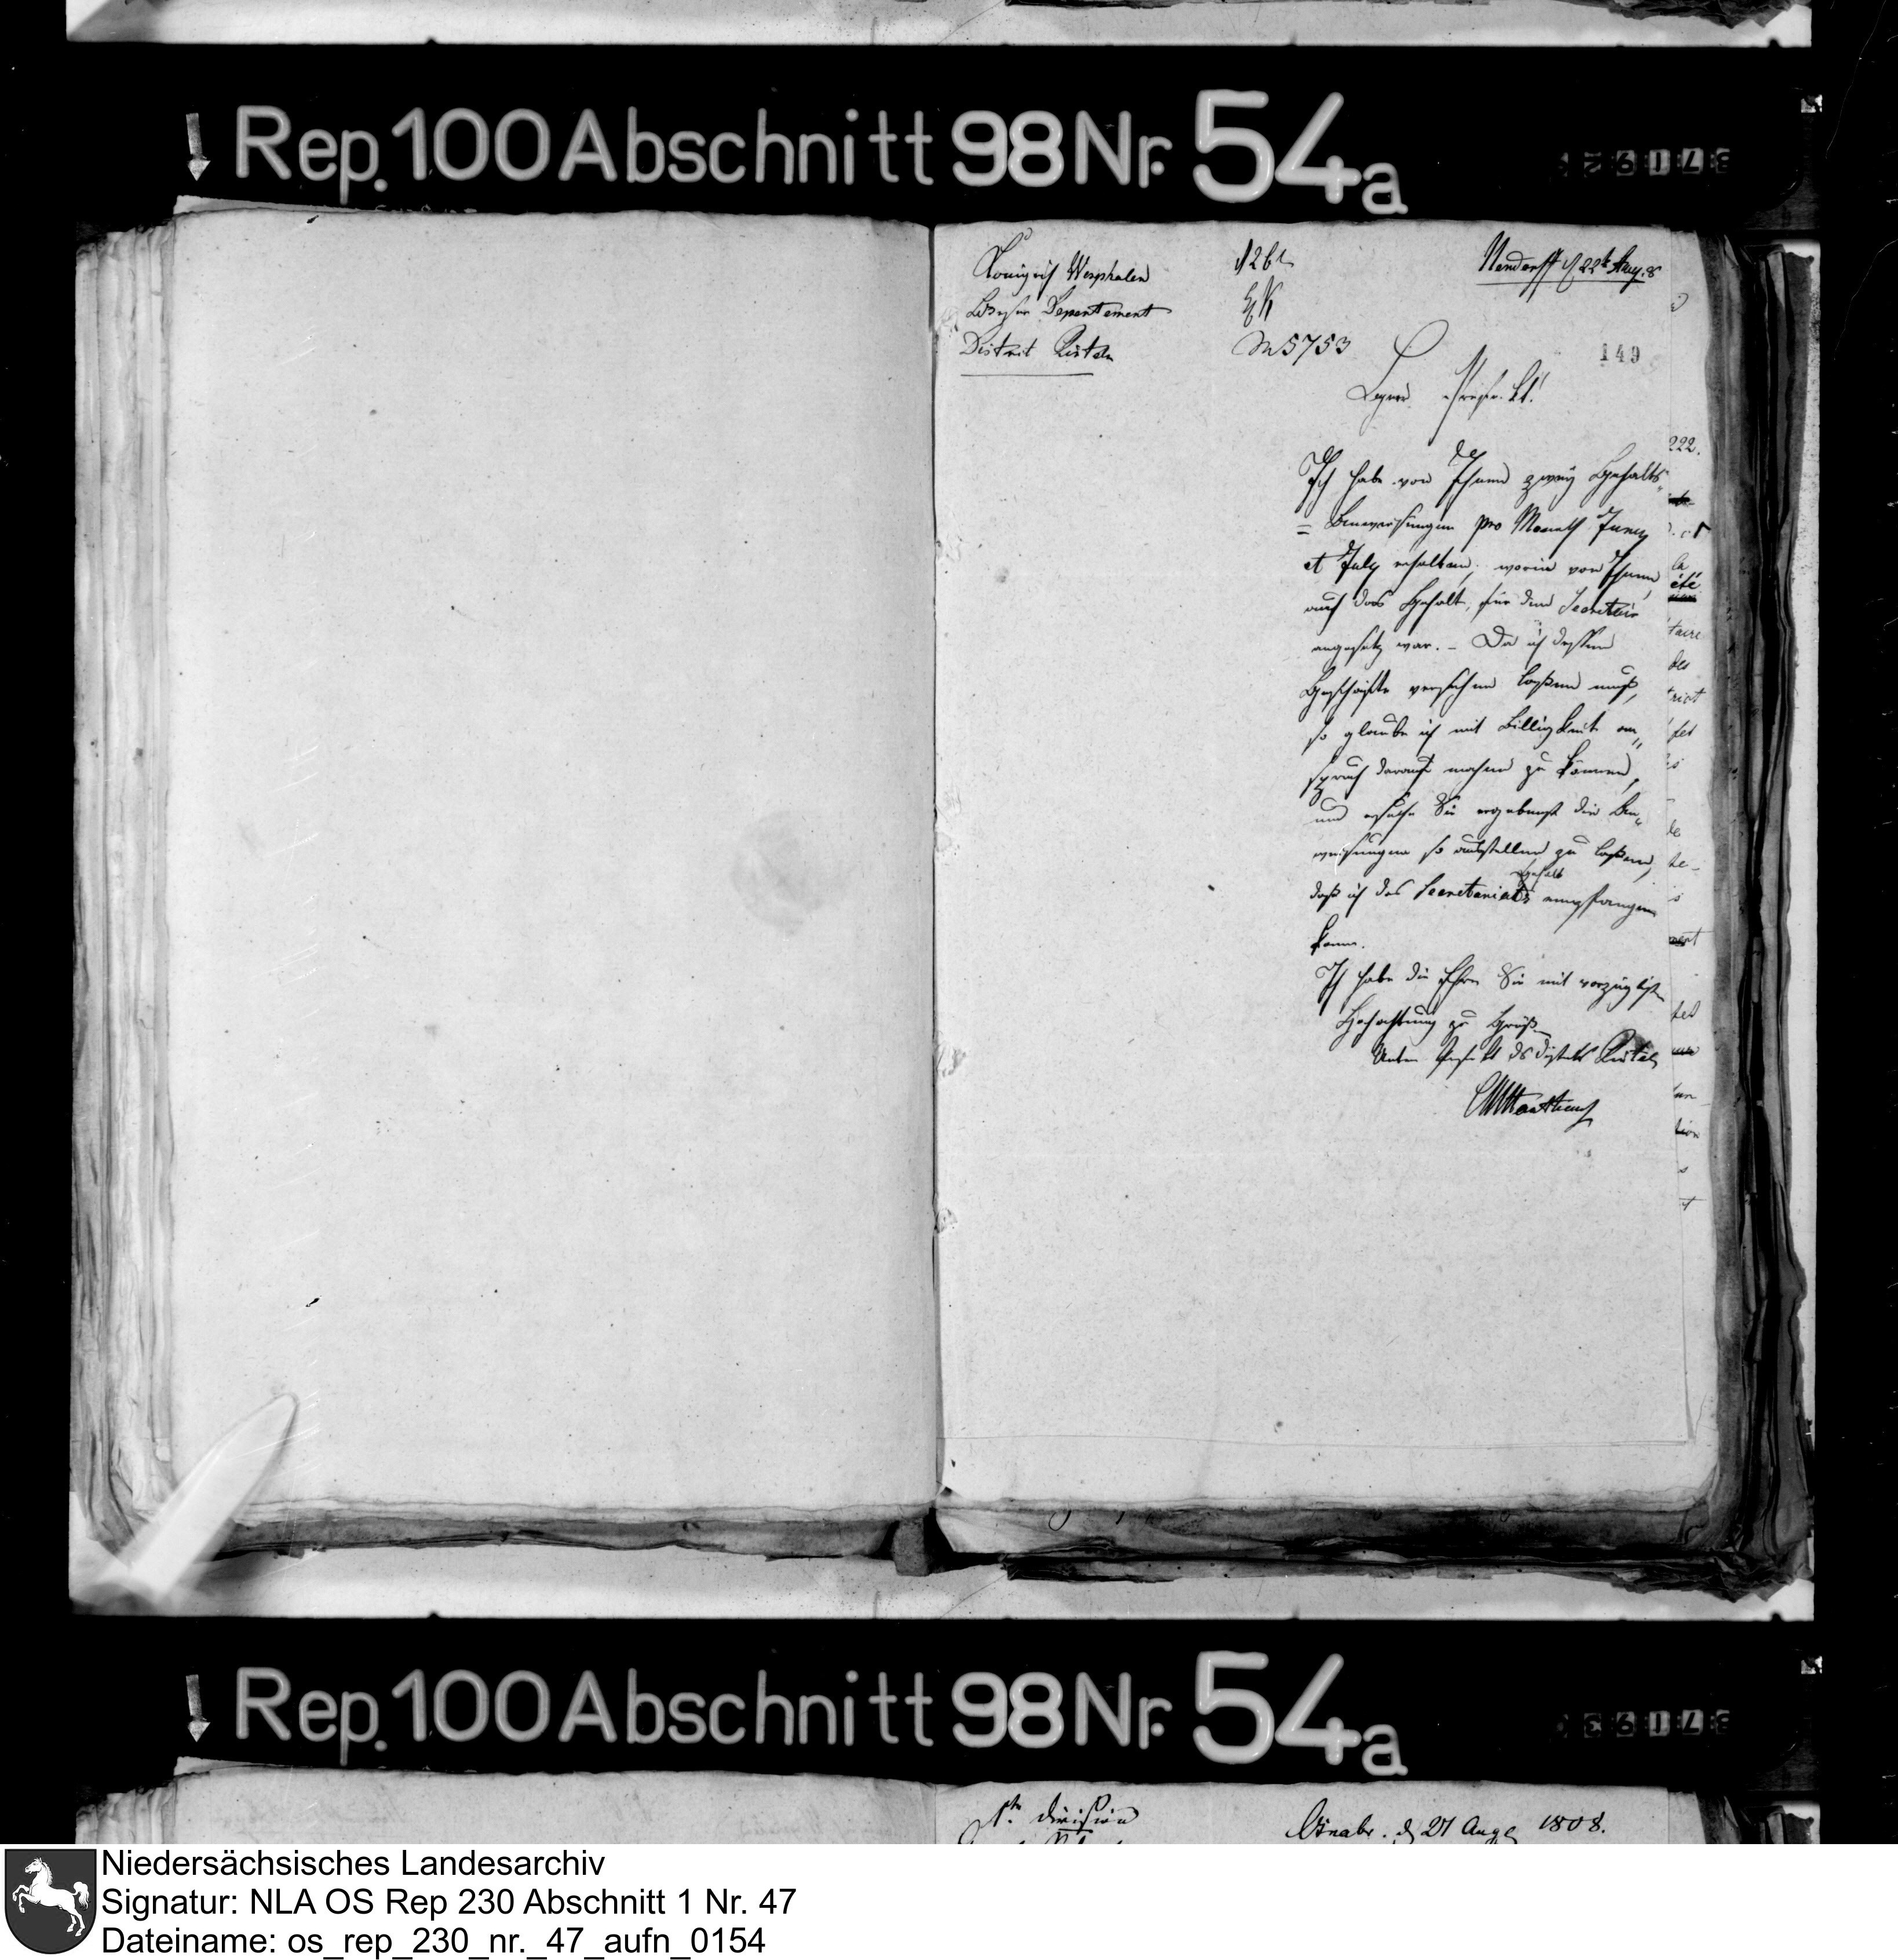 Rep. 100 Abschnitt 98 Nr. 54a
Königreich Westphalen
Weser Departement
District Rinteln
Nendorff d 22t Aug. 8
M 5753
149
Herr Präfect!
222.
Ich habe von Ihnen zwey Gehalts-
= Anweisungen pro Monath Juny
et July erhalten, worin von Ihnen
auch das Gehalt, für den Secretair
angesetzt war. – Da ich dessen
Geschäfte versehen laßen muß,
so glaube ich mit Billigkeit an,,
spruch darauf machen zu können,
und ersuche Sie ergebenst die An,,
weisungen so ausstellen zu laßen,
Gehalt
daß ich das Secretariats empfangen
kann.
Ich habe die Ehre Sie mit vorzüglicher
Hochachtung zu Grüßen
Unter Präfekt des Districts Rinteln
été
taire
des
trict
Rep. 100 Abschnitt 98 Nr. 54a
1te Division
Osnabr. d 27 Aug 1808.
Niedersächsisches Landesarchiv
Signatur: NLA OS Rep 230 Abschnitt 1 Nr. 47
Dateiname: os_rep_230_nr._47_aufn_0154